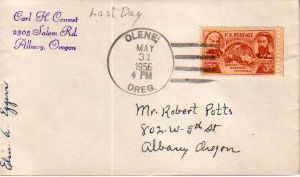 Last Day
Carl H.
2303 Salem Rd.
Albany, Oregon
OLENE,
MAY
31
1956
4 PM
OREG.
U.S. POSTAGE
Mr. Robert Potts
802-W-5th St
Albany Oregon